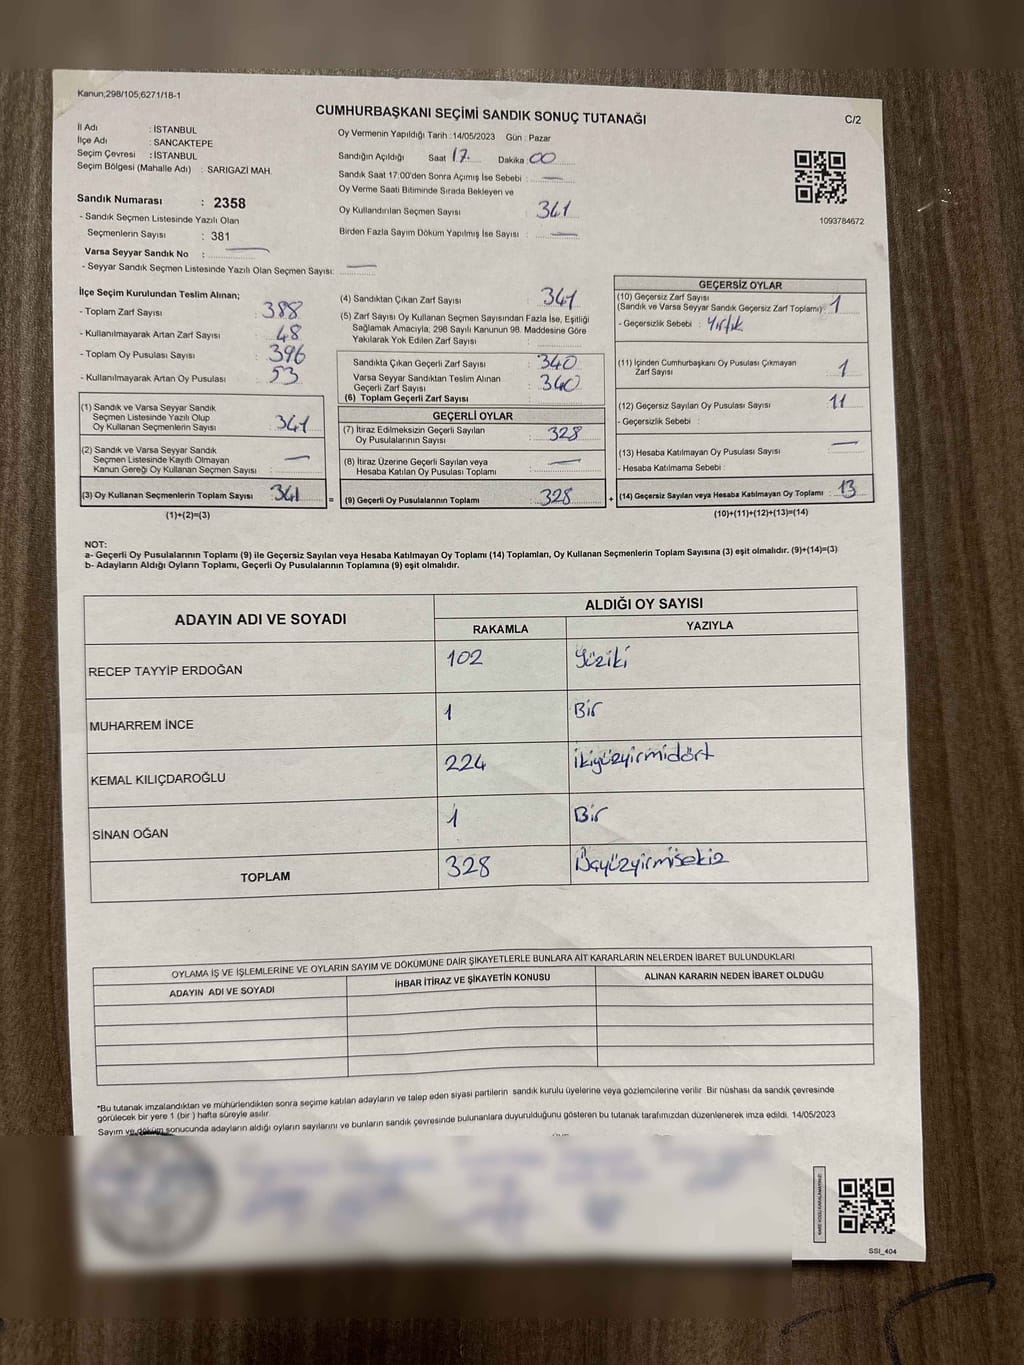 Kanun;298/105;6271/18-1
CUMHURBAŞKANI SEÇİMİ SANDIK SONUÇ TUTANAĞI
C/2
İl Adı : İSTANBUL
İlçe Adı : SANCAKTEPE
Seçim Çevresi : İSTANBUL
Seçim Bölgesi (Mahalle Adı) : SARIGAZİ MAH.
Sandık Numarası : 2358
- Sandık Seçmen Listesinde Yazılı Olan
Seçmenlerin Sayısı : 381
Varsa Seyyar Sandık No : —
- Seyyar Sandık Seçmen Listesinde Yazılı Olan Seçmen Sayısı: —
Oy Vermenin Yapıldığı Tarih :14/05/2023 Gün : Pazar
Sandığın Açıldığı Saat 17. Dakika :00
Sandık Saat 17:00'den Sonra Açımış İse Sebebi : —
Oy Verme Saati Bitiminde Sırada Bekleyen ve
Oy Kullandırılan Seçmen Sayısı : 341
Birden Fazla Sayım Döküm Yapılmış İse Sayısı : —
1093784672
İlçe Seçim Kurulundan Teslim Alınan;
- Toplam Zarf Sayısı : 388
- Kullanılmayarak Artan Zarf Sayısı : 48
- Toplam Oy Pusulası Sayısı : 396
- Kullanılmayarak Artan Oy Pusulası : 53
(1) Sandık ve Varsa Seyyar Sandık
Seçmen Listesinde Yazılı Olup
Oy Kullanan Seçmenlerin Sayısı : 341
(2) Sandık ve Varsa Seyyar Sandık
Seçmen Listesinde Kayıtlı Olmayan
Kanun Gereği Oy Kullanan Seçmen Sayısı : —
(3) Oy Kullanan Seçmenlerin Toplam Sayısı : 341 =
(1)+(2)=(3)
(4) Sandıktan Çıkan Zarf Sayısı : 341
(5) Zarf Sayısı Oy Kullanan Seçmen Sayısından Fazla İse, Eşitliği
Sağlamak Amacıyla; 298 Sayılı Kanunun 98. Maddesine Göre
Yakılarak Yok Edilen Zarf Sayısı :
Sandıkta Çıkan Geçerli Zarf Sayısı : 340
Varsa Seyyar Sandıktan Teslim Alınan
Geçerli Zarf Sayısı : 340
(6) Toplam Geçerli Zarf Sayısı :
GEÇERLİ OYLAR
(7) İtiraz Edilmeksizin Geçerli Sayılan
Oy Pusulalarının Sayısı : 328
(8) İtiraz Üzerine Geçerli Sayılan veya
Hesaba Katılan Oy Pusulası Toplamı : —
(9) Geçerli Oy Pusulalarının Toplamı : 328 +
GEÇERSİZ OYLAR
(10) Geçersiz Zarf Sayısı
(Sandık ve Varsa Seyyar Sandık Geçersiz Zarf Toplamı) : 1
- Geçersizlik Sebebi : Yırtık
(11) İçinden Cumhurbaşkanı Oy Pusulası Çıkmayan
Zarf Sayısı : 1
(12) Geçersiz Sayılan Oy Pusulası Sayısı : 11
- Geçersizlik Sebebi :
(13) Hesaba Katılmayan Oy Pusulası Sayısı : —
- Hesaba Katılmama Sebebi :
(14) Geçersiz Sayılan veya Hesaba Katılmayan Oy Toplamı : 13
(10)+(11)+(12)+(13)=(14)
NOT:
a- Geçerli Oy Pusulalarının Toplamı (9) ile Geçersiz Sayılan veya Hesaba Katılmayan Oy Toplamı (14) Toplamları, Oy Kullanan Seçmenlerin Toplam Sayısına (3) eşit olmalıdır. (9)+(14)=(3)
b- Adayların Aldığı Oyların Toplamı, Geçerli Oy Pusulalarının Toplamına (9) eşit olmalıdır.
ADAYIN ADI VE SOYADI
ALDIĞI OY SAYISI
RAKAMLA YAZIYLA
RECEP TAYYİP ERDOĞAN 102 Yüziki
MUHARREM İNCE 1 Bir
KEMAL KILIÇDAROĞLU 224 İkiyüzyirmidört
SİNAN OĞAN 1 Bir
TOPLAM 328 Üçyüzyirmisekiz
OYLAMA İŞ VE İŞLEMLERİNE VE OYLARIN SAYIM VE DÖKÜMÜNE DAİR ŞİKAYETLERLE BUNLARA AİT KARARLARIN NELERDEN İBARET BULUNDUKLARI
ADAYIN ADI VE SOYADI İHBAR İTİRAZ VE ŞİKAYETİN KONUSU ALINAN KARARIN NEDEN İBARET OLDUĞU
*Bu tutanak imzalandıktan ve mühürlendikten sonra seçime katılan adayların ve talep eden siyasi partilerin sandık kurulu üyelerine veya gözlemcilerine verilir Bir nüshası da sandık çevresinde
görülecek bir yere 1 (bir ) hafta süreyle asılır.
Sayım ve döküm sonucunda adayların aldığı oyların sayılarını ve bunların sandık çevresinde bulunanlara duyurulduğunu gösteren bu tutanak tarafımızdan düzenlenerek imza edildi. 14/05/2023
SSI_404